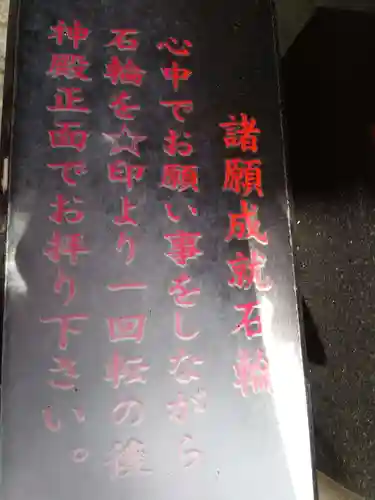 諸願成就石輪
心中でお願い事をしながら
石輪を☆印より一回転の後
神殿正面でお拝り下さい。